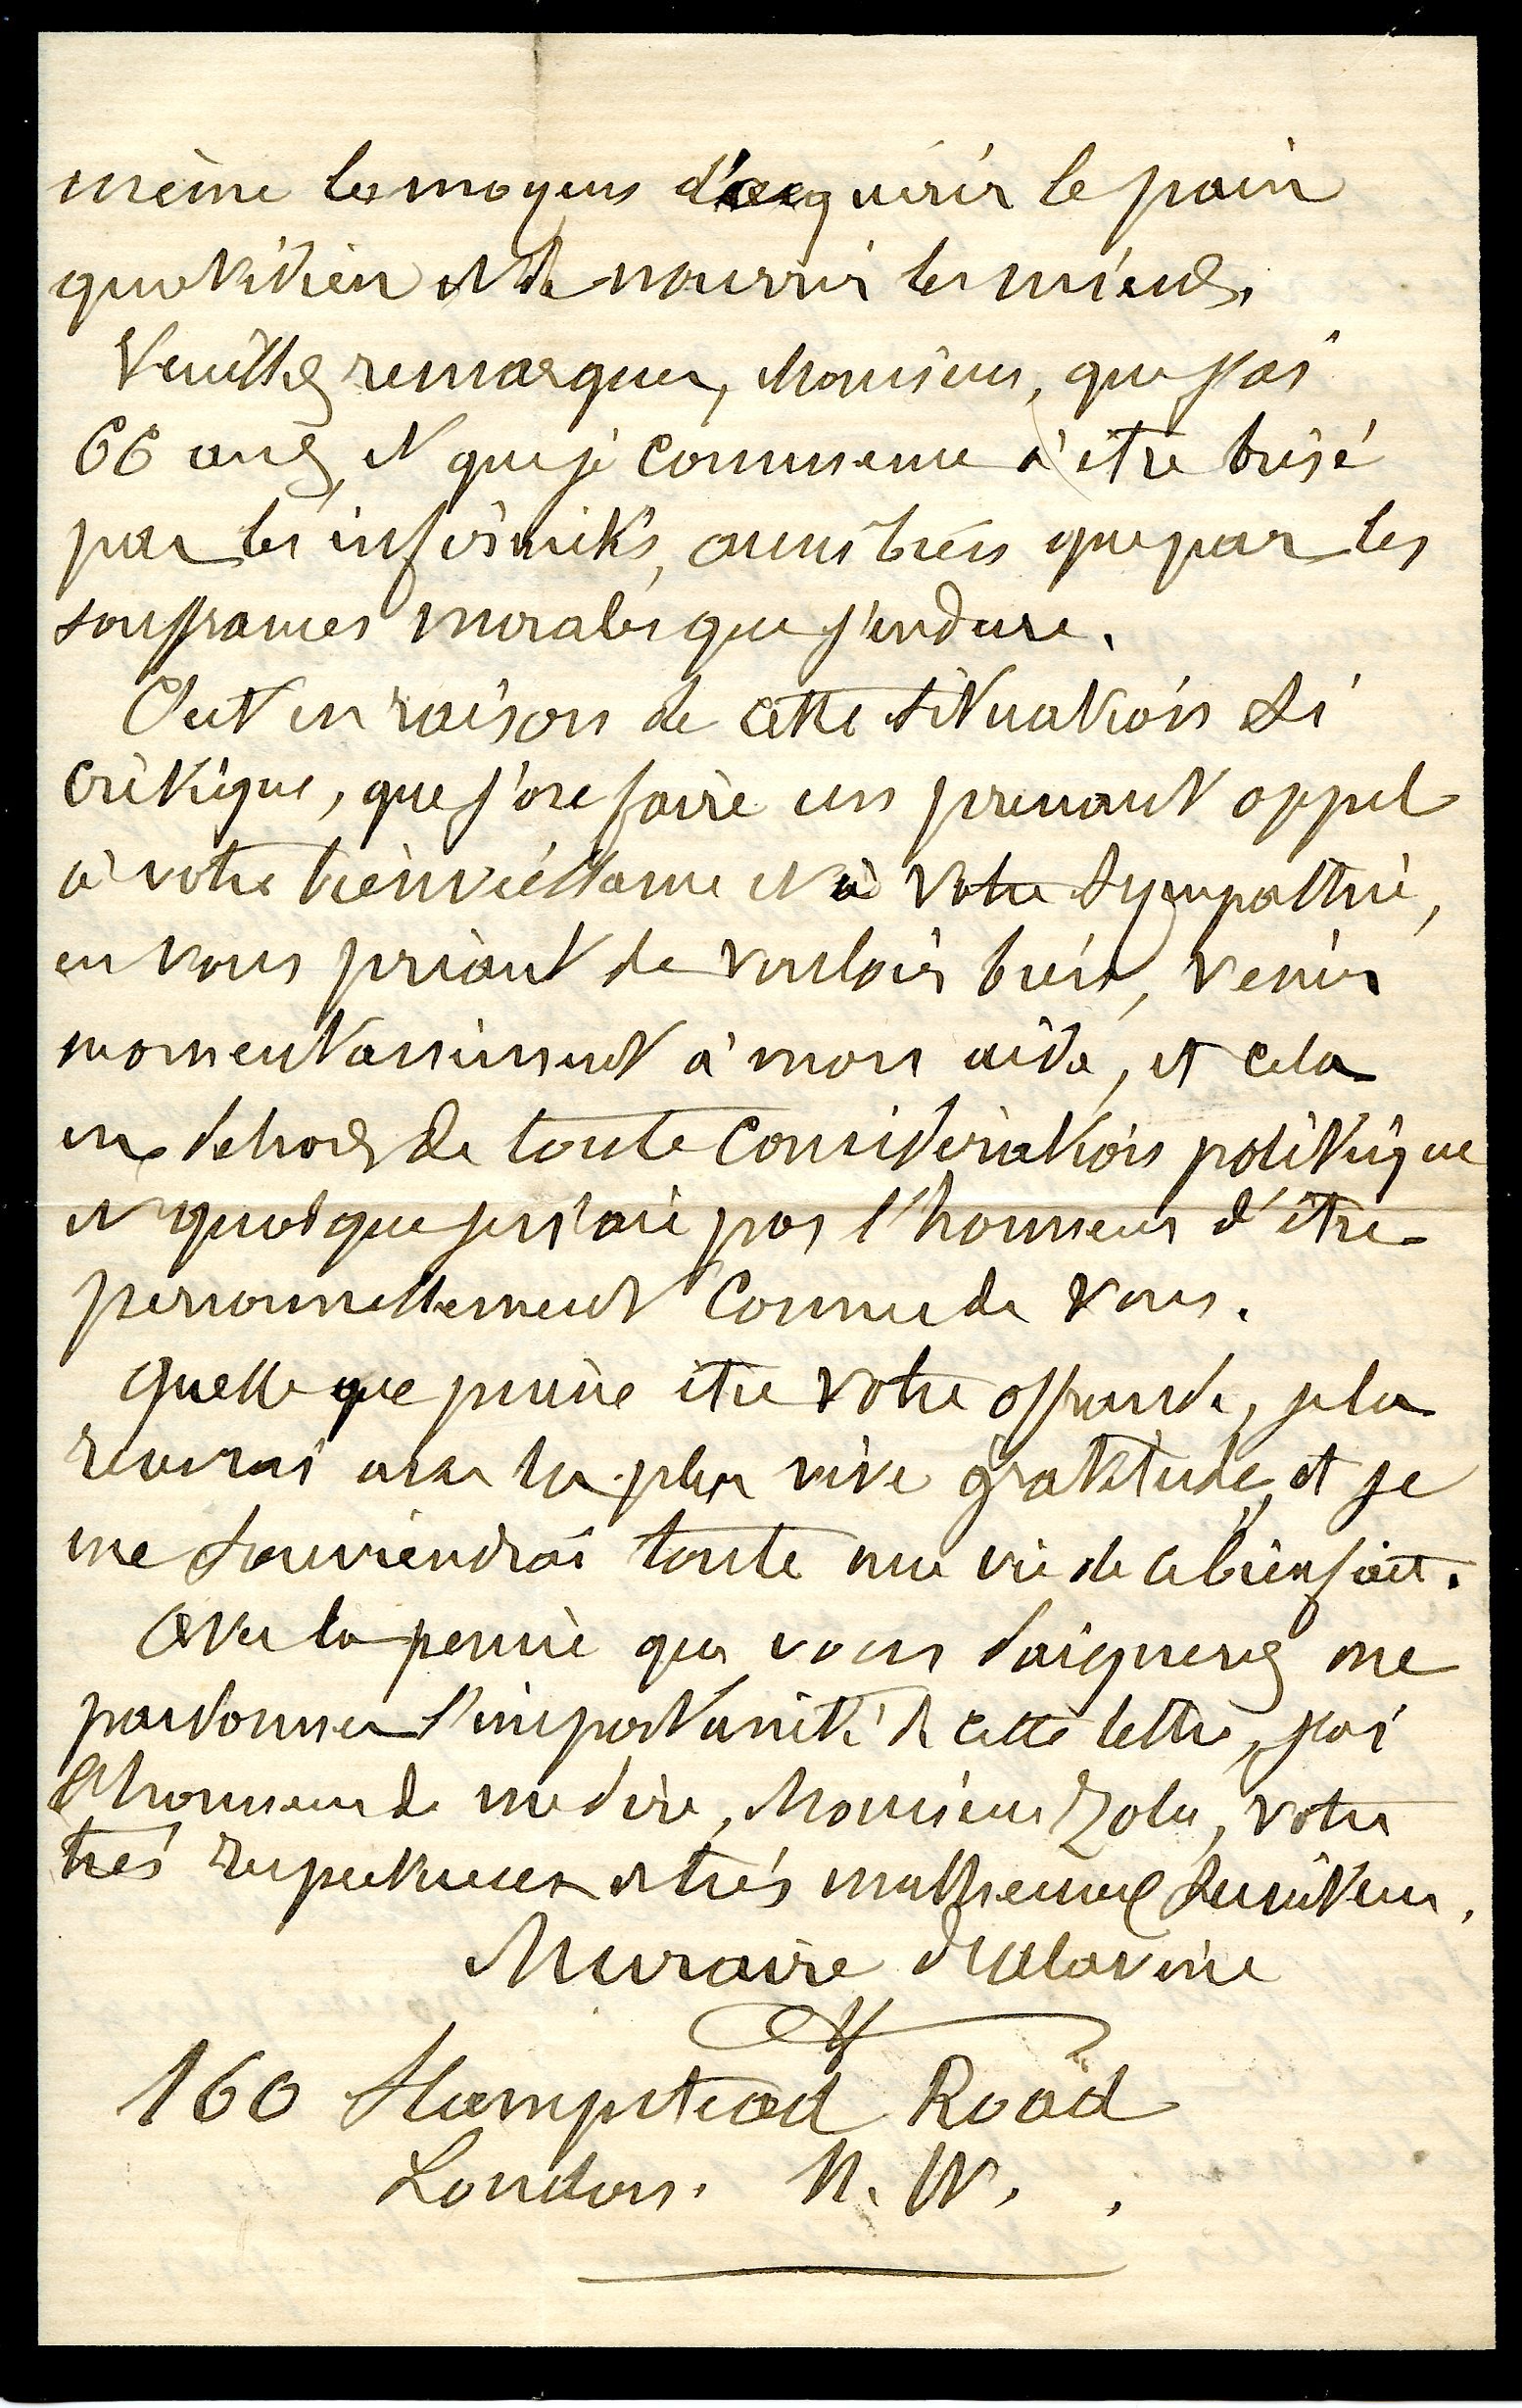 même les moyens d'acquérir le pain
quotidien et de nourrir les miens.
Veuillez remarquer, Monsieur, que j'ai
66 ans, et que je commence à être brisé
par les infirmités, aussi bien que par les
souffrances morales que j'endure.
C'est en raison de cette situation si
critique, que j'ose faire un pressant appel
à votre bienveillance et à votre sympathie,
en vous priant de vouloir bien, venir
momentanément à mon aide, et cela
en dehors de toute considération politique
et quoique je n'aie pas l'honneur d'être
personnellement connu de vous.
Quelle que puisse être votre offrande, je la
recevrai avec la plus vive gratitude, et je
me souviendrai toute ma vie de ce bienfait.
Avec la pensée que vous daignerez me
pardonner l'importunité de cette lettre, j'ai
l'honneur de me dire, Monsieur Zola, votre
très respectueux et très malheureux serviteur.
Muraire
160 Hampstead Road
London. N. W.